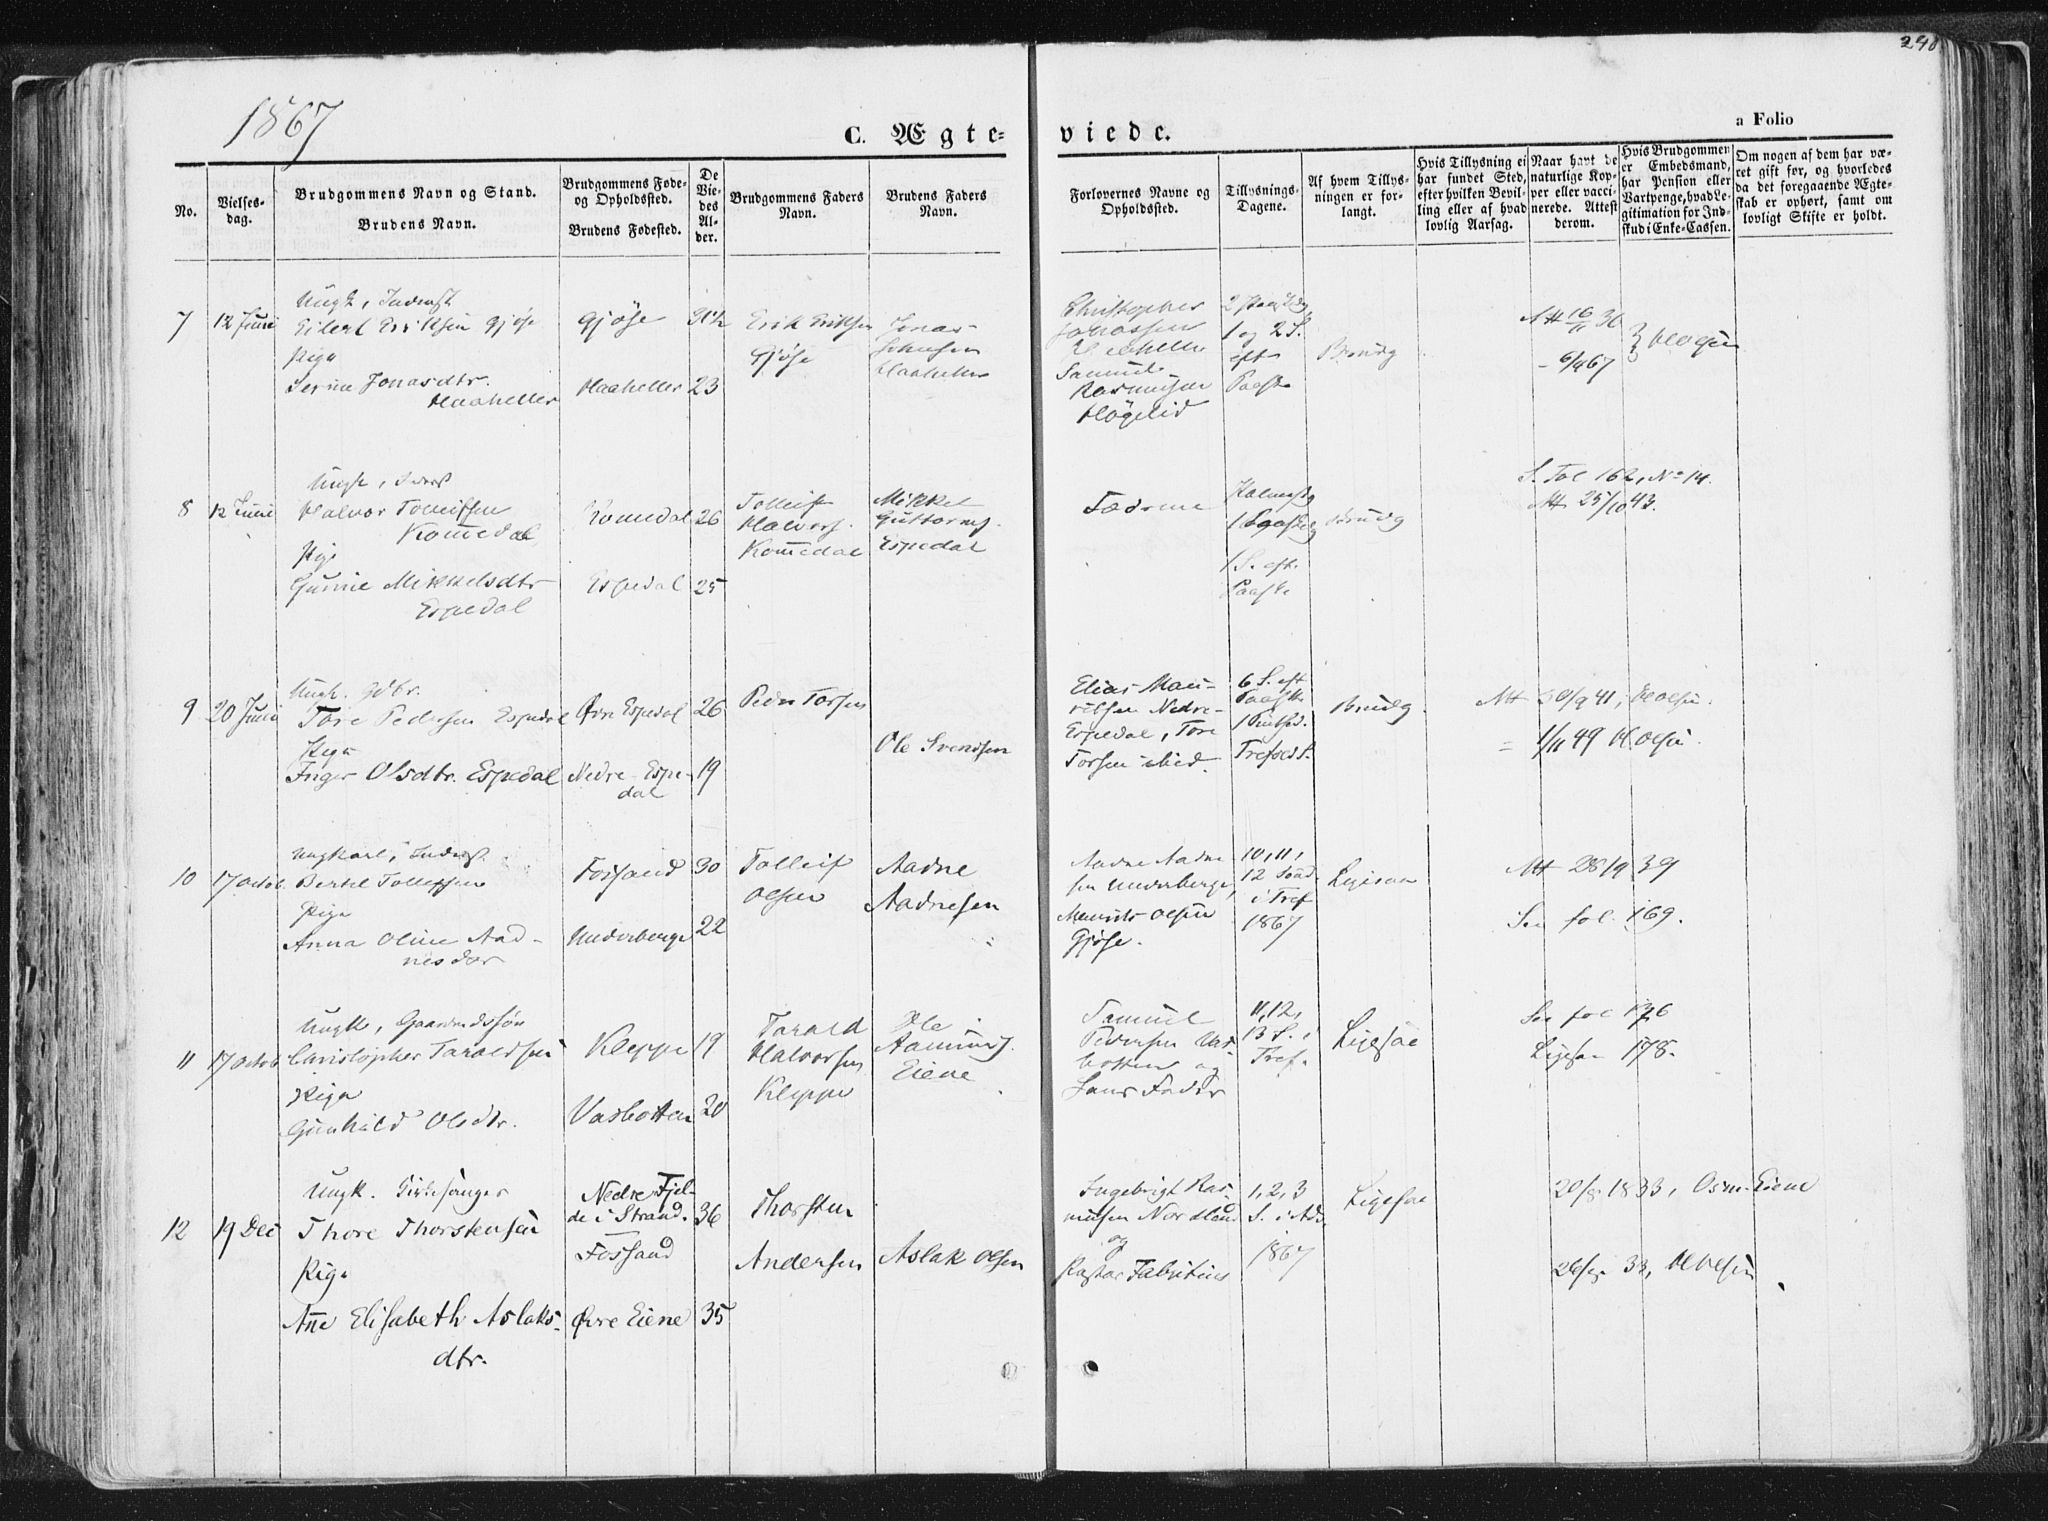 240
1867
C. Ægte-
viede.
a Folio
No.
Vielses-
dag.
Brudgommens Navn og Stand.
Brudens Navn.
Brudgommens Føde-
og Opholdssted.
Brudens Fødested.
De
Vie-
des
Al-
der.
Brudgommens Faders
Navn.
Brudens Faders
Navn.
Forlovernes Navne og
Opholdssted.
Tillysnings-
Dagene.
Af hvem Tillys-
ningen er for-
langt.
Hvis Tillysning ei
har fundet Sted,
efter hvilken Bevil-
ling eller af hvad
lovlig Aarsag.
Naar havt de
naturlige Kop-
per eller vacci-
nerede. Attest
derom.
Hvis Brudgommen
er Embedsmand,
har Pension eller
Vartpenge, hvad Le-
gitimation for Ind-
skud i Enke-Cassen.
Om nogen af dem har væ-
ret gift før, og hvorledes
da det foregaaende Ægte-
skab er ophørt, samt om
lovligt Skifte er holdt.
7
12 Juni
Ungk, Inderst
Eilert Eriksen Gjøse
Pige
Serine Jonasdtr.
Haaheller
Gjøse
Haaheller
23
Erik Eriksen
Gjøse
Jonas
Haaheller
Christopher
Jonassen
Samuel
Rasmussen
Høgelid
1 og 2 S.
eft
Paaske
Brudg
6/4 67
8
12 Juni
Halvor Tolleifsen
Komedal
Pige
Gunne Mikkelsdtr
Espedal
Komedal
Espedal
26
25
Tolleif
Halvors.
Komedal
Mikkel
Guttorms.
Espedal
Fædrene
1 S. eft.
Paaske
Brudg
S. Fol 162, No 14.
Att 25/10 43.
9
20 Juni
Ungk. Gdbr.
Tore Pedersen Espedal
Pige
Inger Olsdtr. Espedal
Øvre Espedal
Nedre-Espe-
dal
26
19
Peder Torsen
Ole Svendsen
Elias Mau-
ritsen Nedre-
Espedal, Tore
Torsen ibid.
6 S. eft
Paaske
1 Pintsed.
Trefsed S.
Brudg.
Att 30/9 41, Holsen.
= 1/11 49 Holsen.
10
17 Octob.
Ungkarl, Inderst.
Bertel Tolleifsen
Pige
Anna Oline Aad-
nesdtr
Fossand
Underberge
30
22
Tolleif
Olsen
Aadne
Aadnesen
Aadne Aadne
sen Underberge,
Maurits Olsen
Gjøse.
10, 11,
12 Sønd.
i Tref
1867
Ligesaa
Att 28/9 39
See fol. 169.
11
17 Octob
Ungk, Gaardmandssøn
Christopher Taraldsen
Pige
Gunhild Olsdtr.
Kleppe
Vasbotten
19
20
Tarald
Halvorsen
Kleppe
Ole
Aamunds.
Eiene
Samuel
Pedersen Vas-
botten og
Hans Fader
11, 12,
13 S. i
Tref.
Ligesaa
See fol 176
Ligesaa 178.
12
19 Dec
Ungk. Kirkesanger
Thore Thorstensen
Pige
Ane Elisabeth Aslaks-
dtr.
Nedre Fjel-
de i Strand.
Fossand
Øvre Eiene
36
35
Thorsten
Andersen
Aslak Olsen
Ingebrigt Ras-
musen Nordland
og
Pastor Fabritius
1, 2, 3
S. i Adv.
1867
Ligesaa
20/8 1833, Osm. Eiene
26/8 33, Holsen